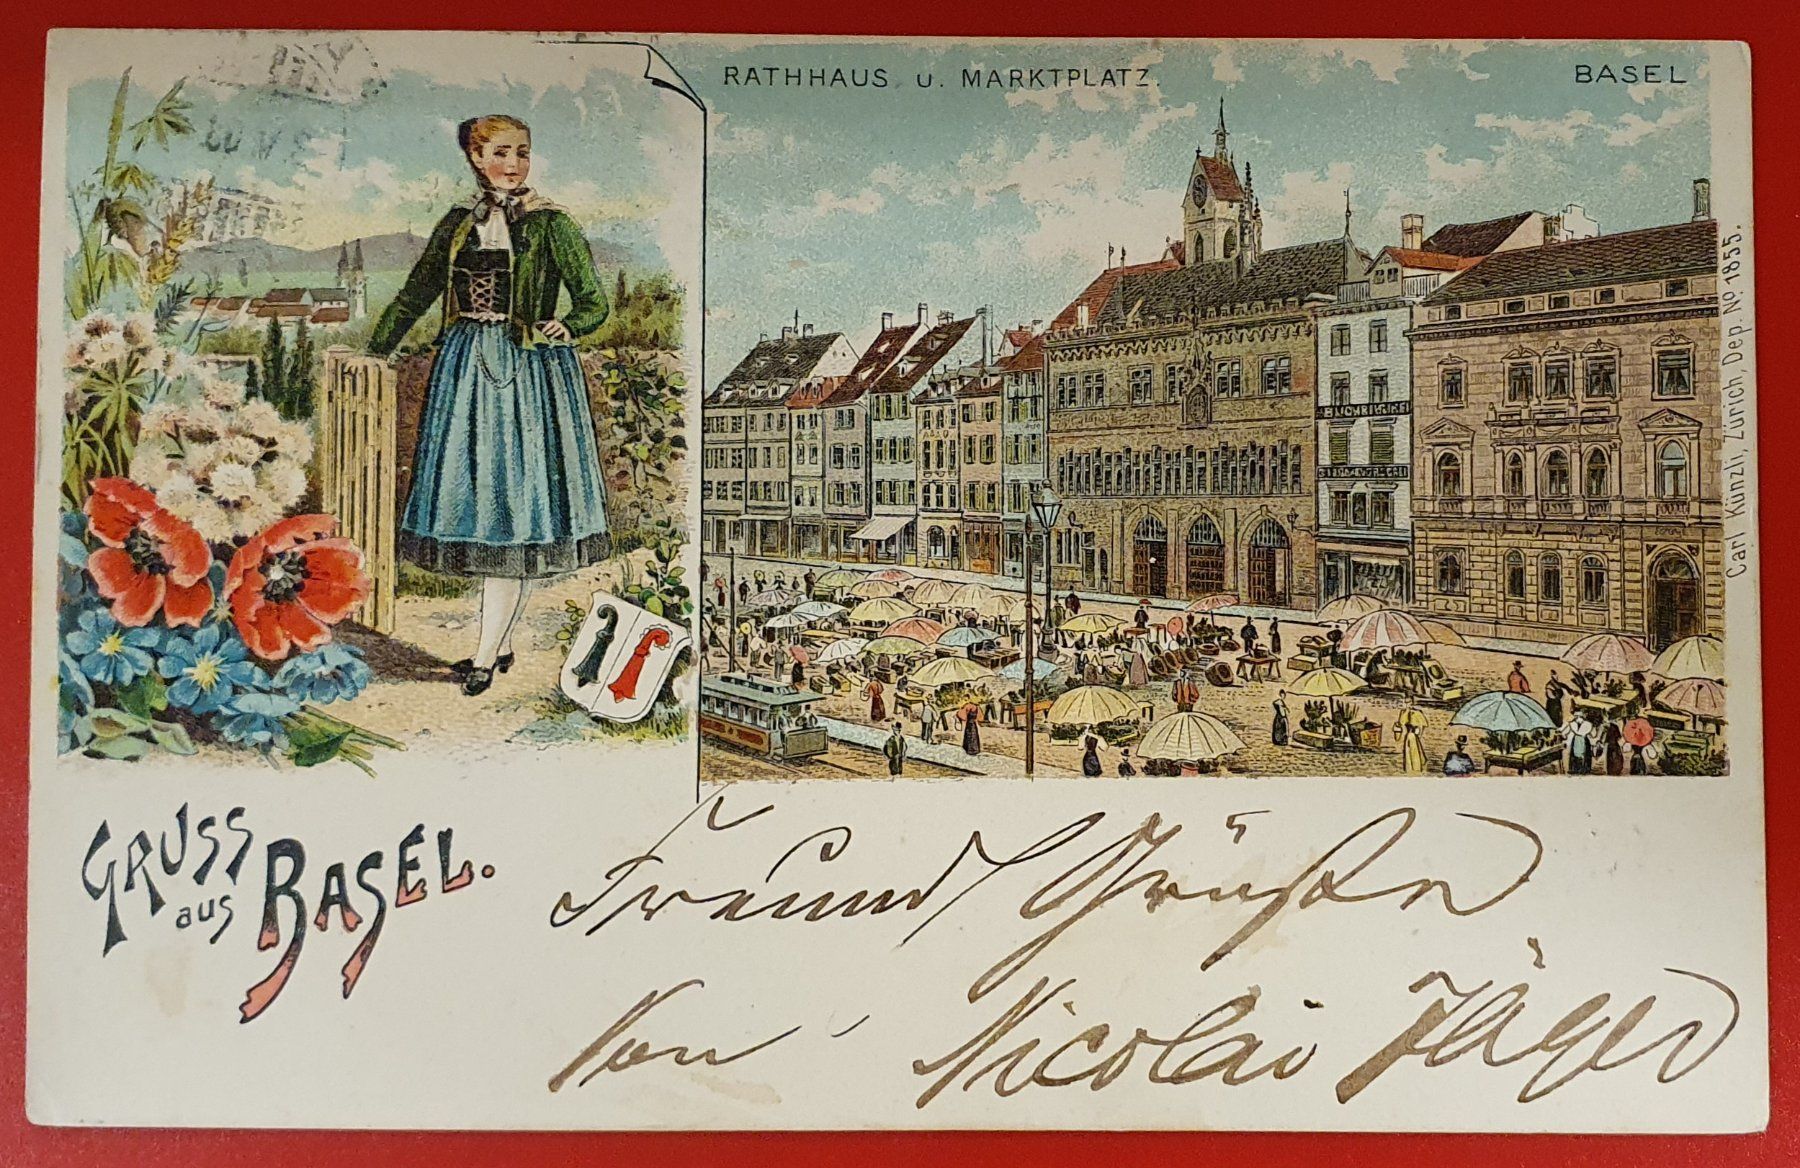 RATHHAUS U. MARKTPLATZ.
BASEL
Carl Künzli, Zürich, Dep. No. 1855.
GRUSS
aus BASEL.
Freund Grüße
Von Nicolai Jäger